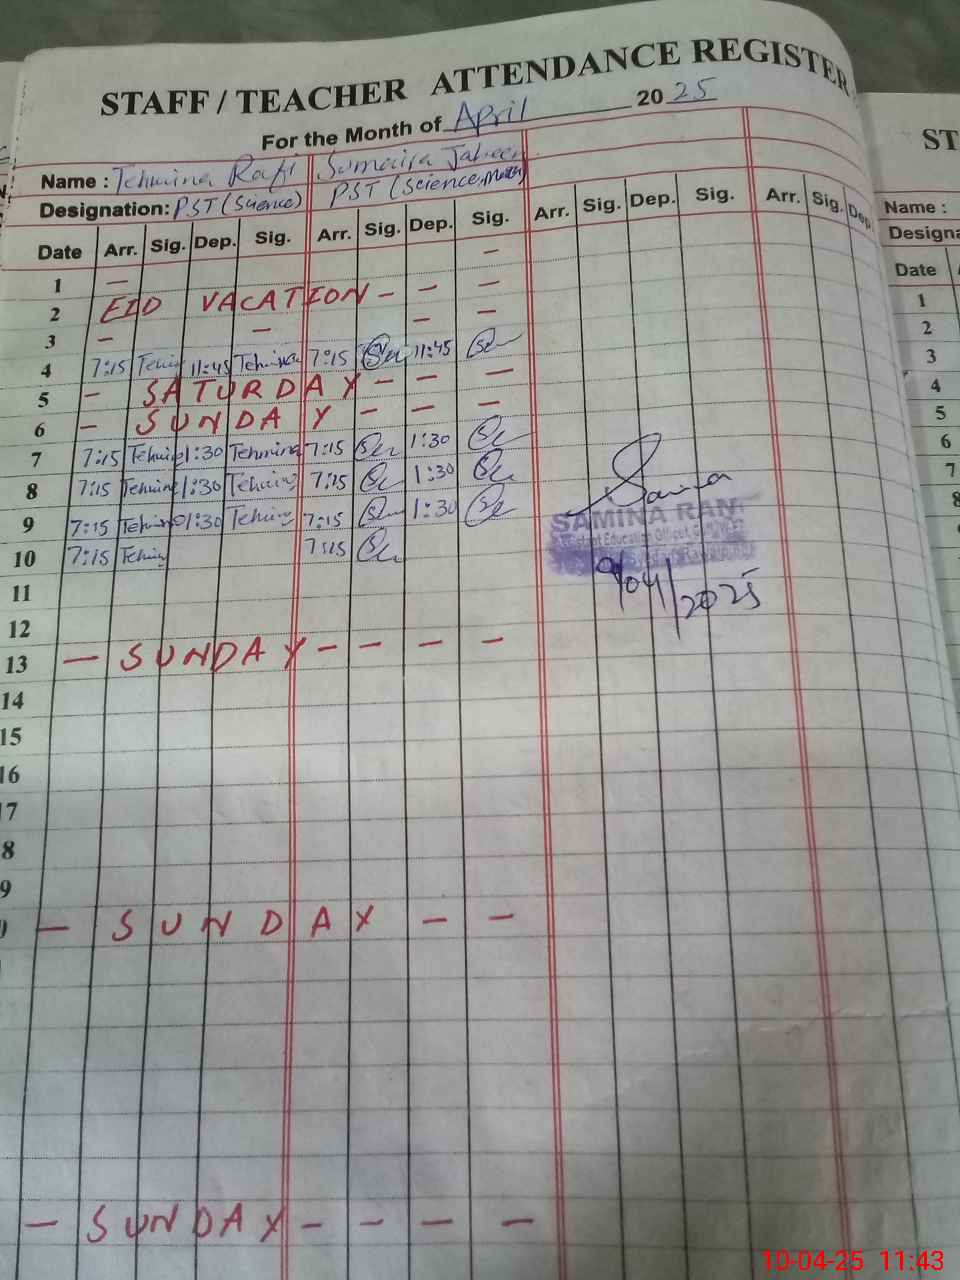 STAFF / TEACHER ATTENDANCE REGISTER
For the Month of April 2025
Name : Tehmina Rafi Sumaira Jabeen
Designation: PST (Science) PST (Science, Math)
Date Arr. Sig. Dep. Sig. Arr. Sig. Dep. Sig. Arr. Sig. Dep. Sig. Arr. Sig. Dep.
1 — —
2 EID VACATION — — —
3 — — — —
4 7:15 Tehmin 11:45 Tehmina 7:15 11:45
5 — SATURDAY — — —
6 — SUNDAY — — —
7 7:15 Tehmin 1:30 Tehmina 7:15 1:30
8 7:15 Tehmin 1:30 Tehmin 7:15 1:30
9 7:15 Tehmin 1:30 Tehmin 7:15 1:30
10 7:15 Tehmin 7:15
11
12
13 — SUNDAY — — — —
14
15
16
17
8
9
0 — SUNDAY — —
— SUNDAY — — — —
Samina
SAMINA RANI
Assistant Education Officer
9/04/2025
ST
Name :
Designa
Date
1
2
3
4
5
6
7
8
10-04-25 11:43